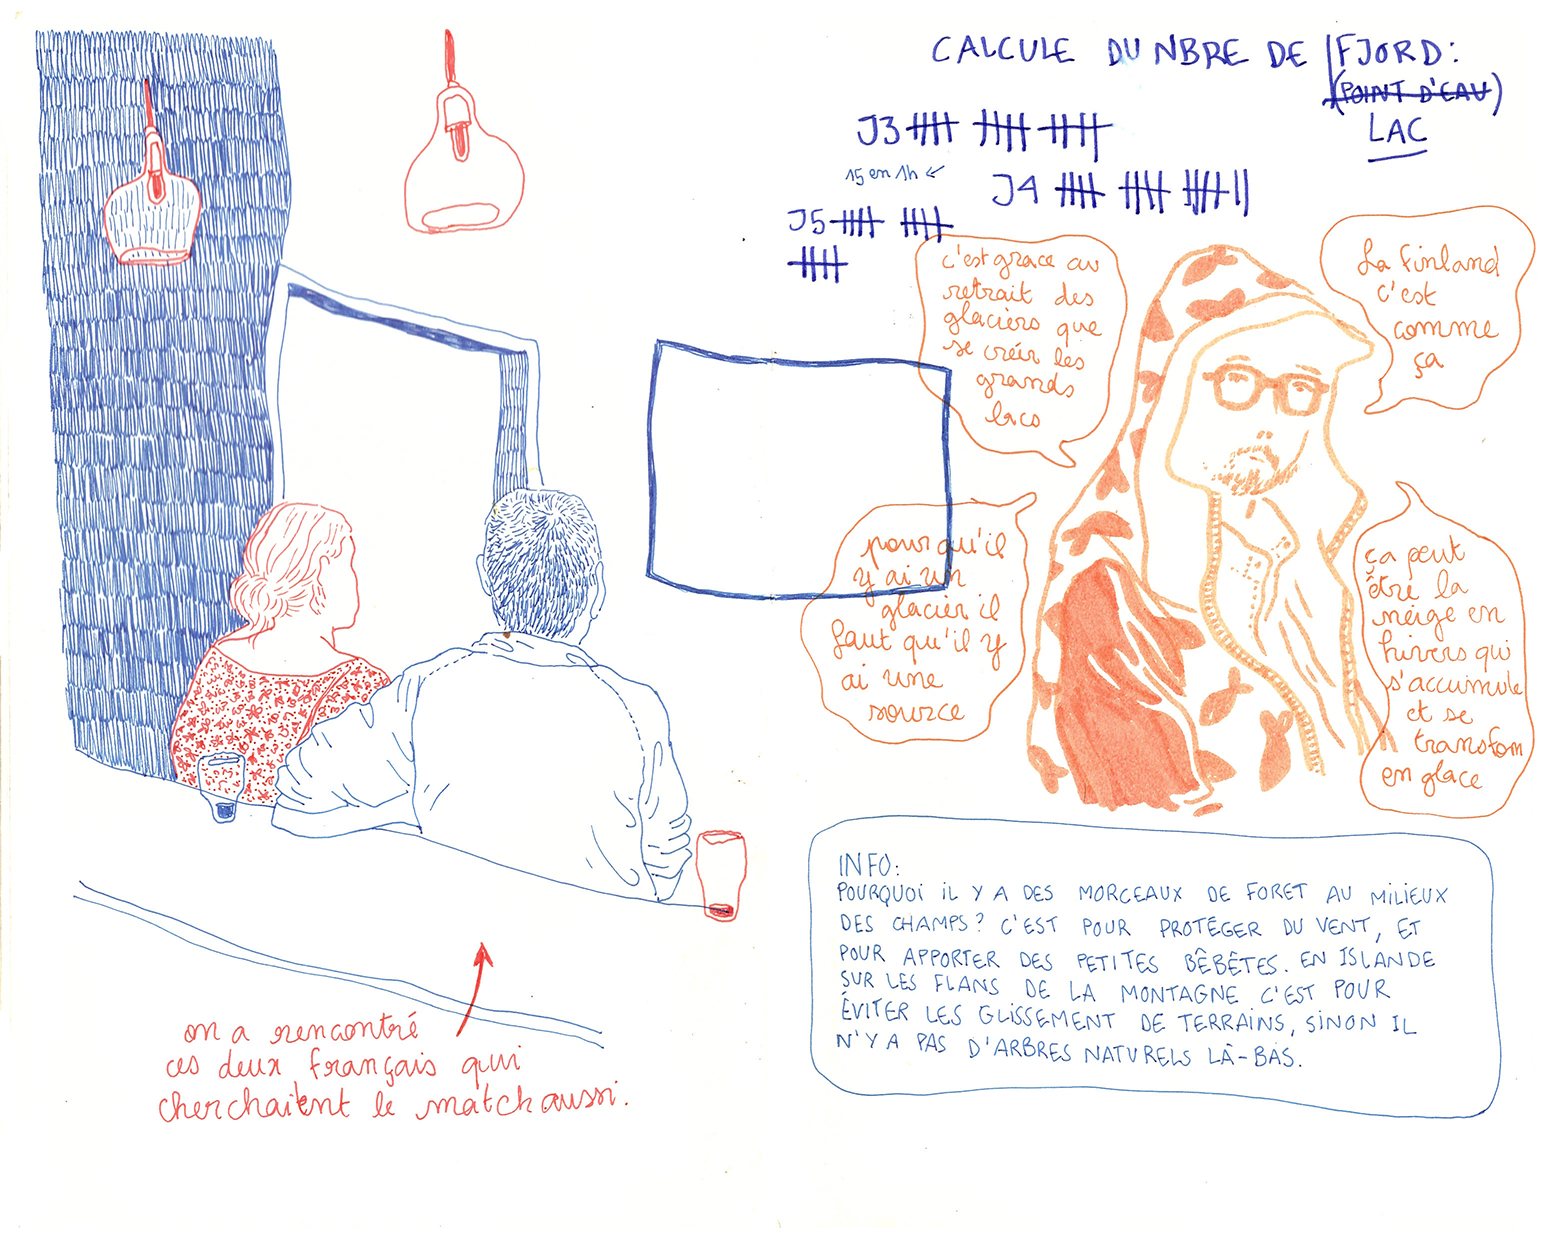 CALCULE DU NBRE DE FJORD:
(POINT D'EAU)
LAC
J3
15 en 1h
J4
J5
c'est grace au
retrait des
glaciers que
se créér les
grands
lacs
La Finland
c'est
comme
ça
pourqu'il
y ai un
glacier il
faut qu'il y
ai une
source
ça peut
être la
neige en
hivers qui
s'accumule
et se
transfom
en glace
INFO:
POURQUOI IL Y A DES MORCEAUX DE FORET AU MILIEUX
DES CHAMPS? C'EST POUR PROTÉGER DU VENT, ET
POUR APPORTER DES PETITES BÊBÊTES. EN ISLANDE
SUR LES FLANS DE LA MONTAGNE C'EST POUR
ÉVITER LES GLISSEMENT DE TERRAINS, SINON IL
N'Y A PAS D'ARBRES NATURELS LÀ-BAS.
on a rencontré
ces deux français qui
cherchaient le match aussi.